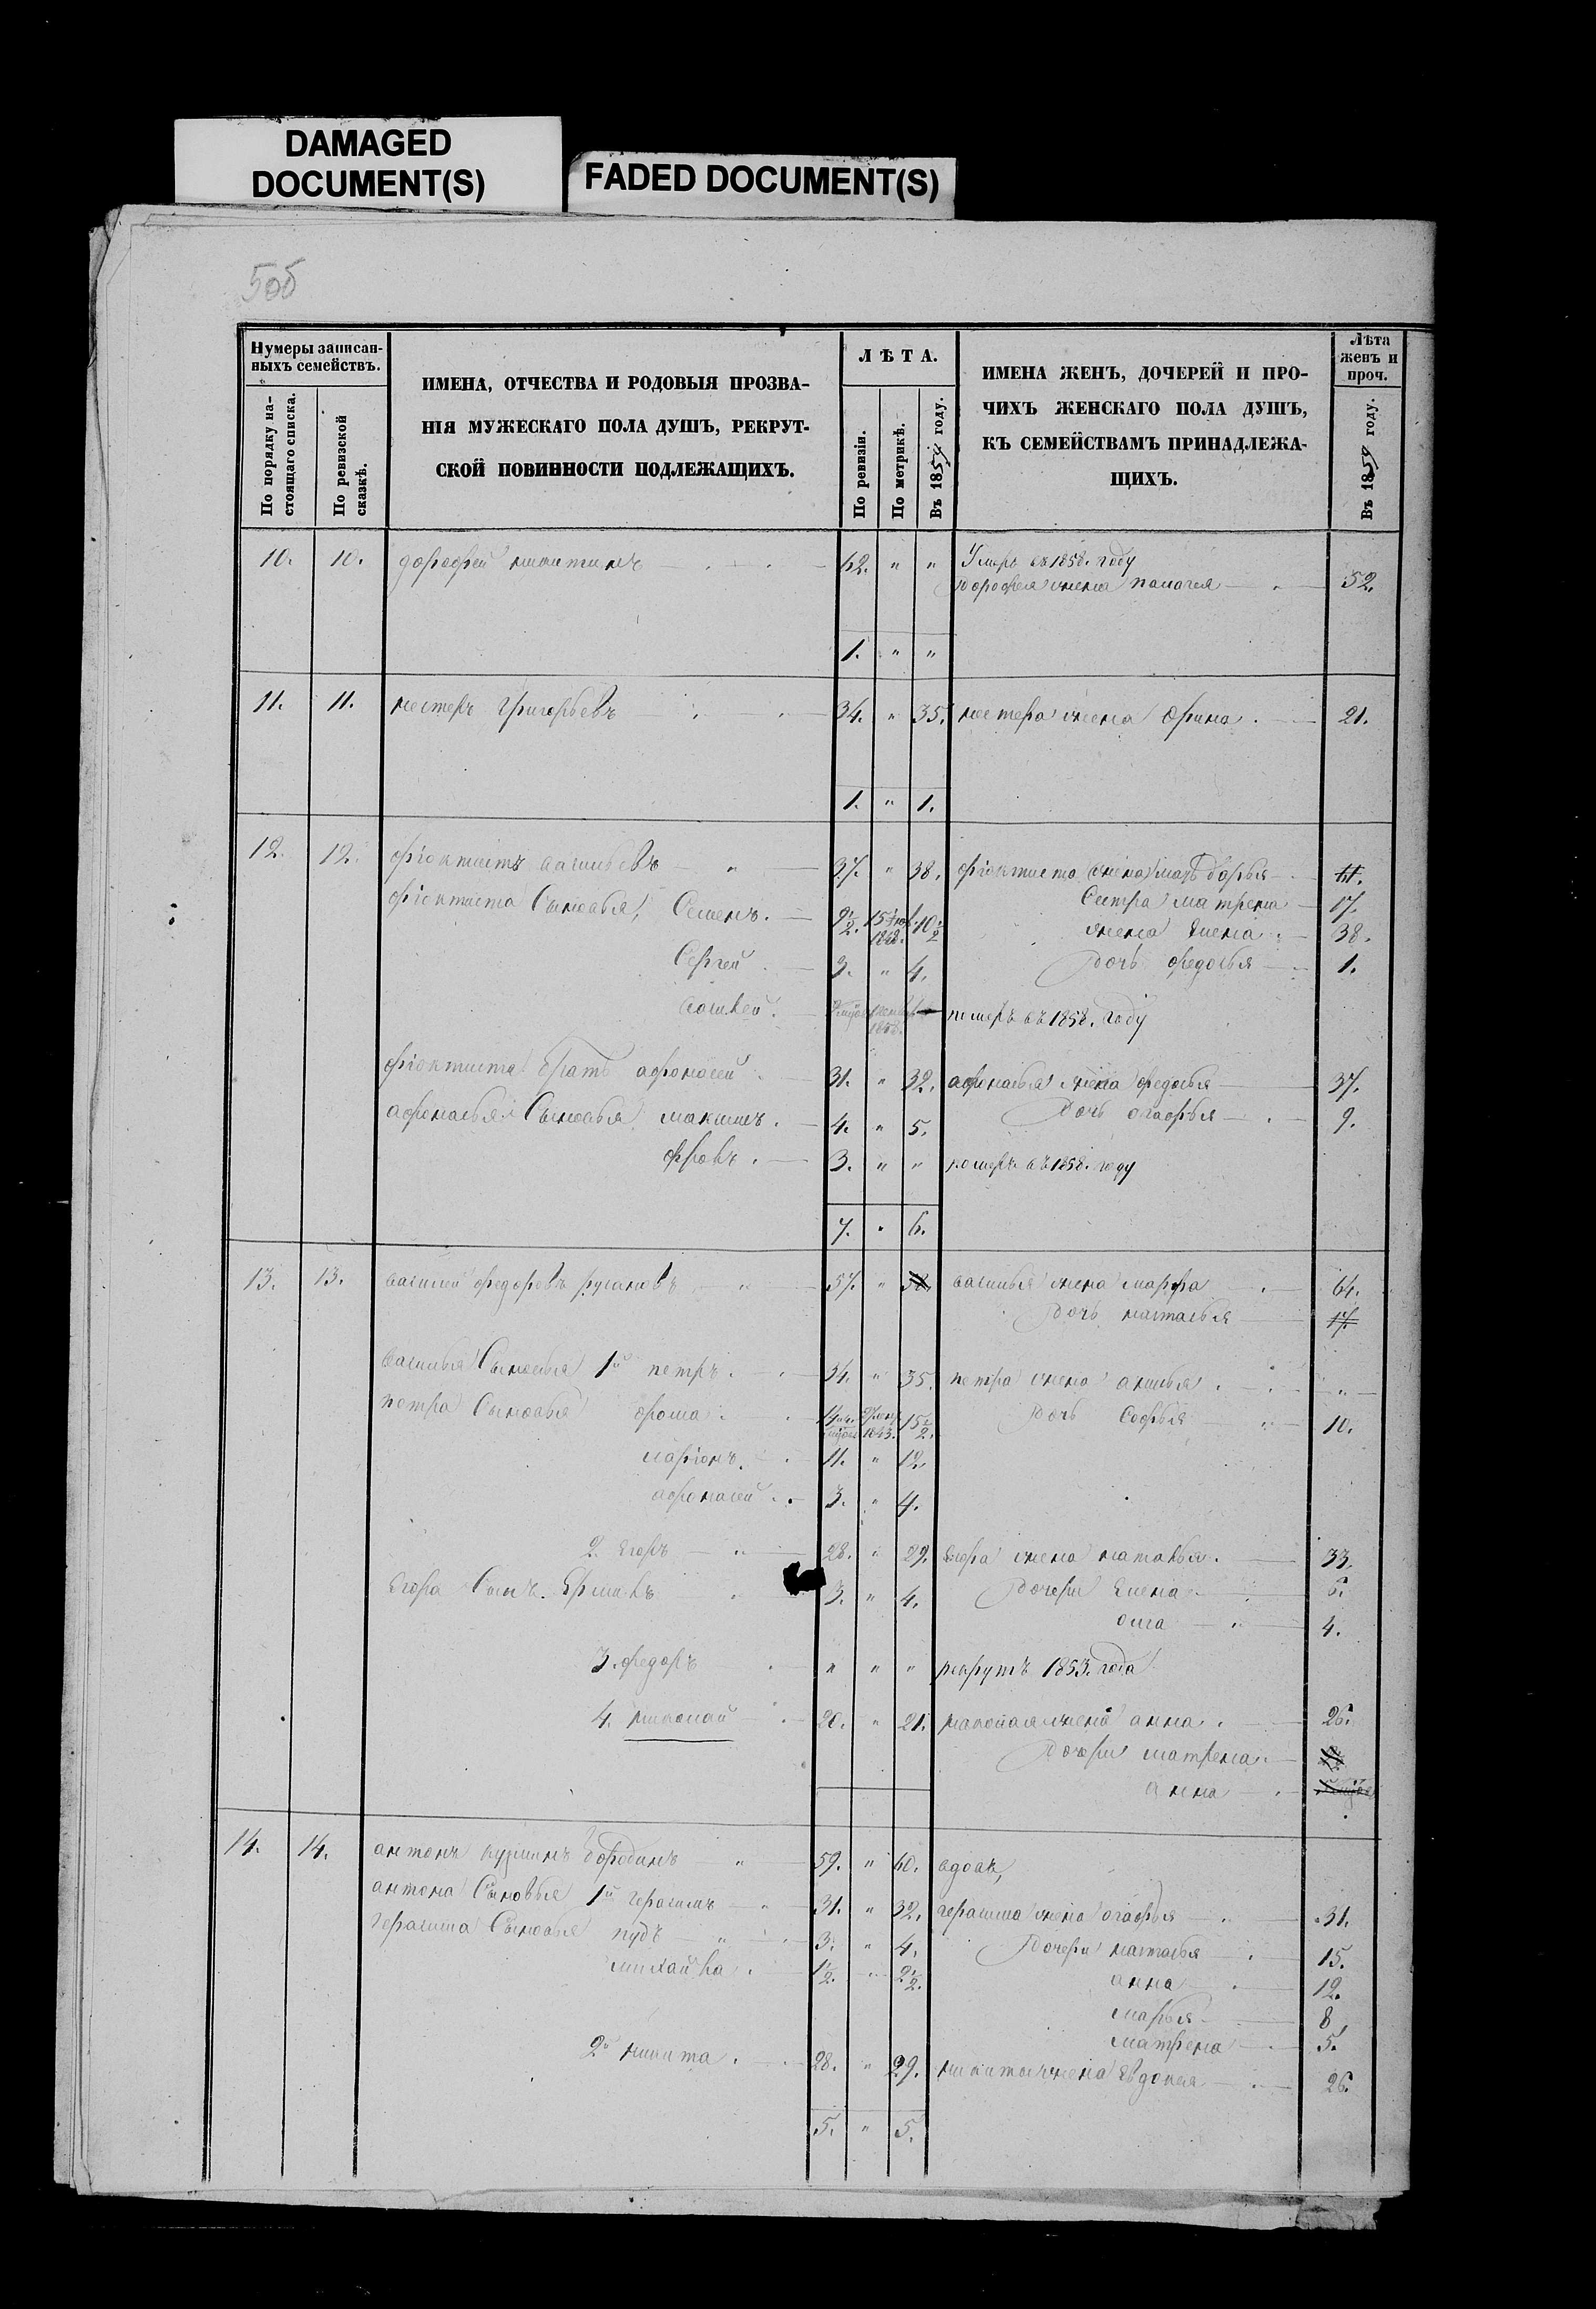 DAMAGED
DOCUMENT(S)
FADED DOCUMENT(S)
Нумеры записан-
ныхъ семействъ.
По порядку на-
стоящаго списка.
По ревизской
сказкѣ.
ИМЕНА, ОТЧЕСТВА И РОДОВЫЯ ПРОЗВА-
НІЯ МУЖЕСКАГО ПОЛА ДУШЪ, РЕКРУТ-
СКОЙ ПОВИННОСТИ ПОДЛЕЖАЩИХЪ.
ЛѢТА.
По ревизіи.
По метрикѣ.
Въ 1859 году.
ИМЕНА ЖЕНЪ, ДОЧЕРЕЙ И ПРО-
ЧИХЪ ЖЕНСКАГО ПОЛА ДУШЪ,
КЪ СЕМЕЙСТВАМЪ ПРИНАДЛЕЖА-
ЩИХЪ.
Лѣта
женъ и
проч.
Въ 1859 году.
10. 10. дорофей никитинъ 62. " " Умеръ въ 1858. году
дорофея жена 52.
1. " "
11. 11. нестеръ Григорьевъ 34. " 35. нестера жена Орина 21.
1. " 1.
12. 12. фіоктистъ васильевъ 37. " 38. фіоктиста мать дарья
фіоктиста Сыновья, Семенъ. 9½. 10½ Сестра матрена 17.
жена Елена 38.
Сергей 3. " 4. дочь федосья 1.
померъ въ 1858. году
фіоктиста братъ афонасей 31. " 32. афонасья жена федосья 37.
афонасья Сыновья максимъ. 4. " 5. дочь огафья 9.
фролъ. 3. " " померъ въ 1858. году
7. " 6.
13. 13. василей федоровъ русановъ 57. " 58. василья жена марфа 64.
дочь настасья 17.
василья Сыновья 1й петръ. 34. " 35. петра жена "
петра Сыновья фома 1843. 15½. дочь Софья 10.
ларіонъ. 11. " 12.
афонасей. 3. " 4.
2. Егоръ 28. " 29. Егора жена наталья. 33.
Егора Сынъ. Ермилъ 3. " 4. дочери Елена 6.
олга 4.
3. федоръ " " " рекрутъ 1853. года
4. николай 20. " 21. николая жена анна. 26.
дочери матрена.
анна
14. 14. антонъ кузминъ бородинъ 59. " 60. вдовъ,
антона Сыновья 1й герасимъ 31. " 32. герасима жена огафья 31.
герасима Сыновья пудъ 3. " 4. дочери настасья 15.
михайла. 1½. " 2½. анна 12.
марья 8.
матрена 5.
2й никита. 28. " 29. никиты жена Евдокея 26.
5. " 5.